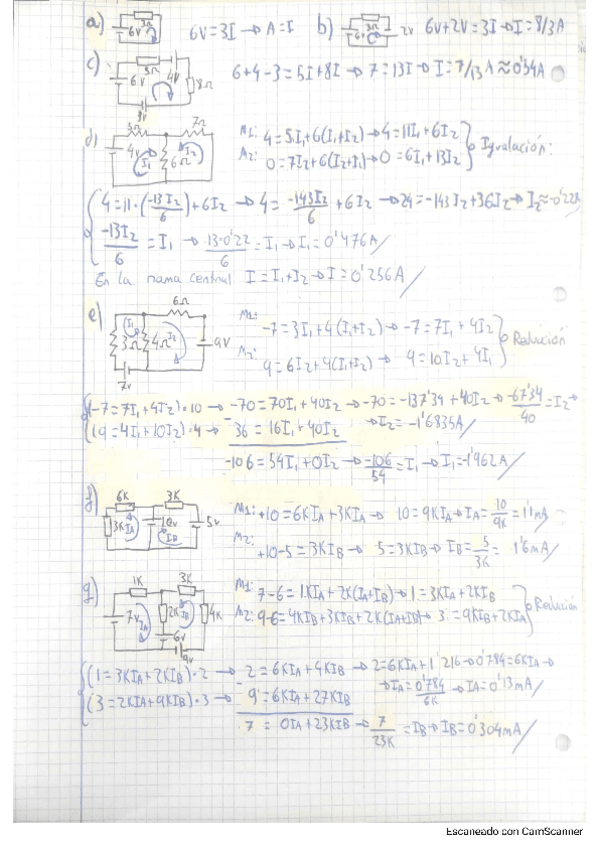 a) 6V 3Ω 6V=3I → A=I b) 6V 3Ω 2V 6V+2V=3I→I=8/3A
c) 6V 5Ω 4V 8Ω 3V 6+4-3=5I+8I → 7=13I→ I=7/13 A ≈0'54A
d) 4V 5Ω 7Ω 6Ω I1 I2
M1: 4=5I1+6(I1+I2)→4=11I1+6I2
M2: 0=7I2+6(I2+I1)→0=6I1+13I2
Igualación:
4=11·(-13I2/6)+6I2 → 4=-143I2/6+6I2 →24=-143I2+36I2→I2≈-0'22A
-13I2/6=I1 → 13·0'22/6=I1→I1=0'476A
En la rama central I=I1+I2→I=0'256A
e) 3Ω 4Ω 6Ω 9V 7V I1 I2
M1: -7=3I1+4(I1+I2)→-7=7I1+4I2
M2: 9=6I2+4(I1+I2)→ 9=10I2+4I1
Reducción
(-7=7I1+4I2)·10 → -70=70I1+40I2→-70=-137'34+40I2→-67'34/40=I2→
(9=4I1+10I2)·4→ 36=16I1+40I2 →I2=-1'6835A
-106=54I1+0I2→-106/54=I1→I1=-1'962A
f) 6K 3K 3K IA 10V IB 5V
M1: +10=6KIA+3KIA→ 10=9KIA→IA=10/9K=1'1mA
M2: +10-5=3KIB→ 5=3KIB→IB=5/3K= 1'6mA
g) 1K 3K 7V IA 2K IB 4K 6V 9V
M1: 7-6=1KIA+2K(IA+IB)→1=3KIA+2KIB
M2: 9-6=4KIB+3KIB+2K(IA+IB)→ 3=9KIB+2KIA
Reducción
(1=3KIA+2KIB)·2 → 2=6KIA+4KIB →2=6KIA+1'216→0'784=6KIA→
(3=2KIA+9KIB)·3→ 9=6KIA+27KIB →IA=0'784/6K →IA=0'13mA
7=0IA+23KIB→7/23K=IB→IB=0'304mA
Escaneado con CamScanner